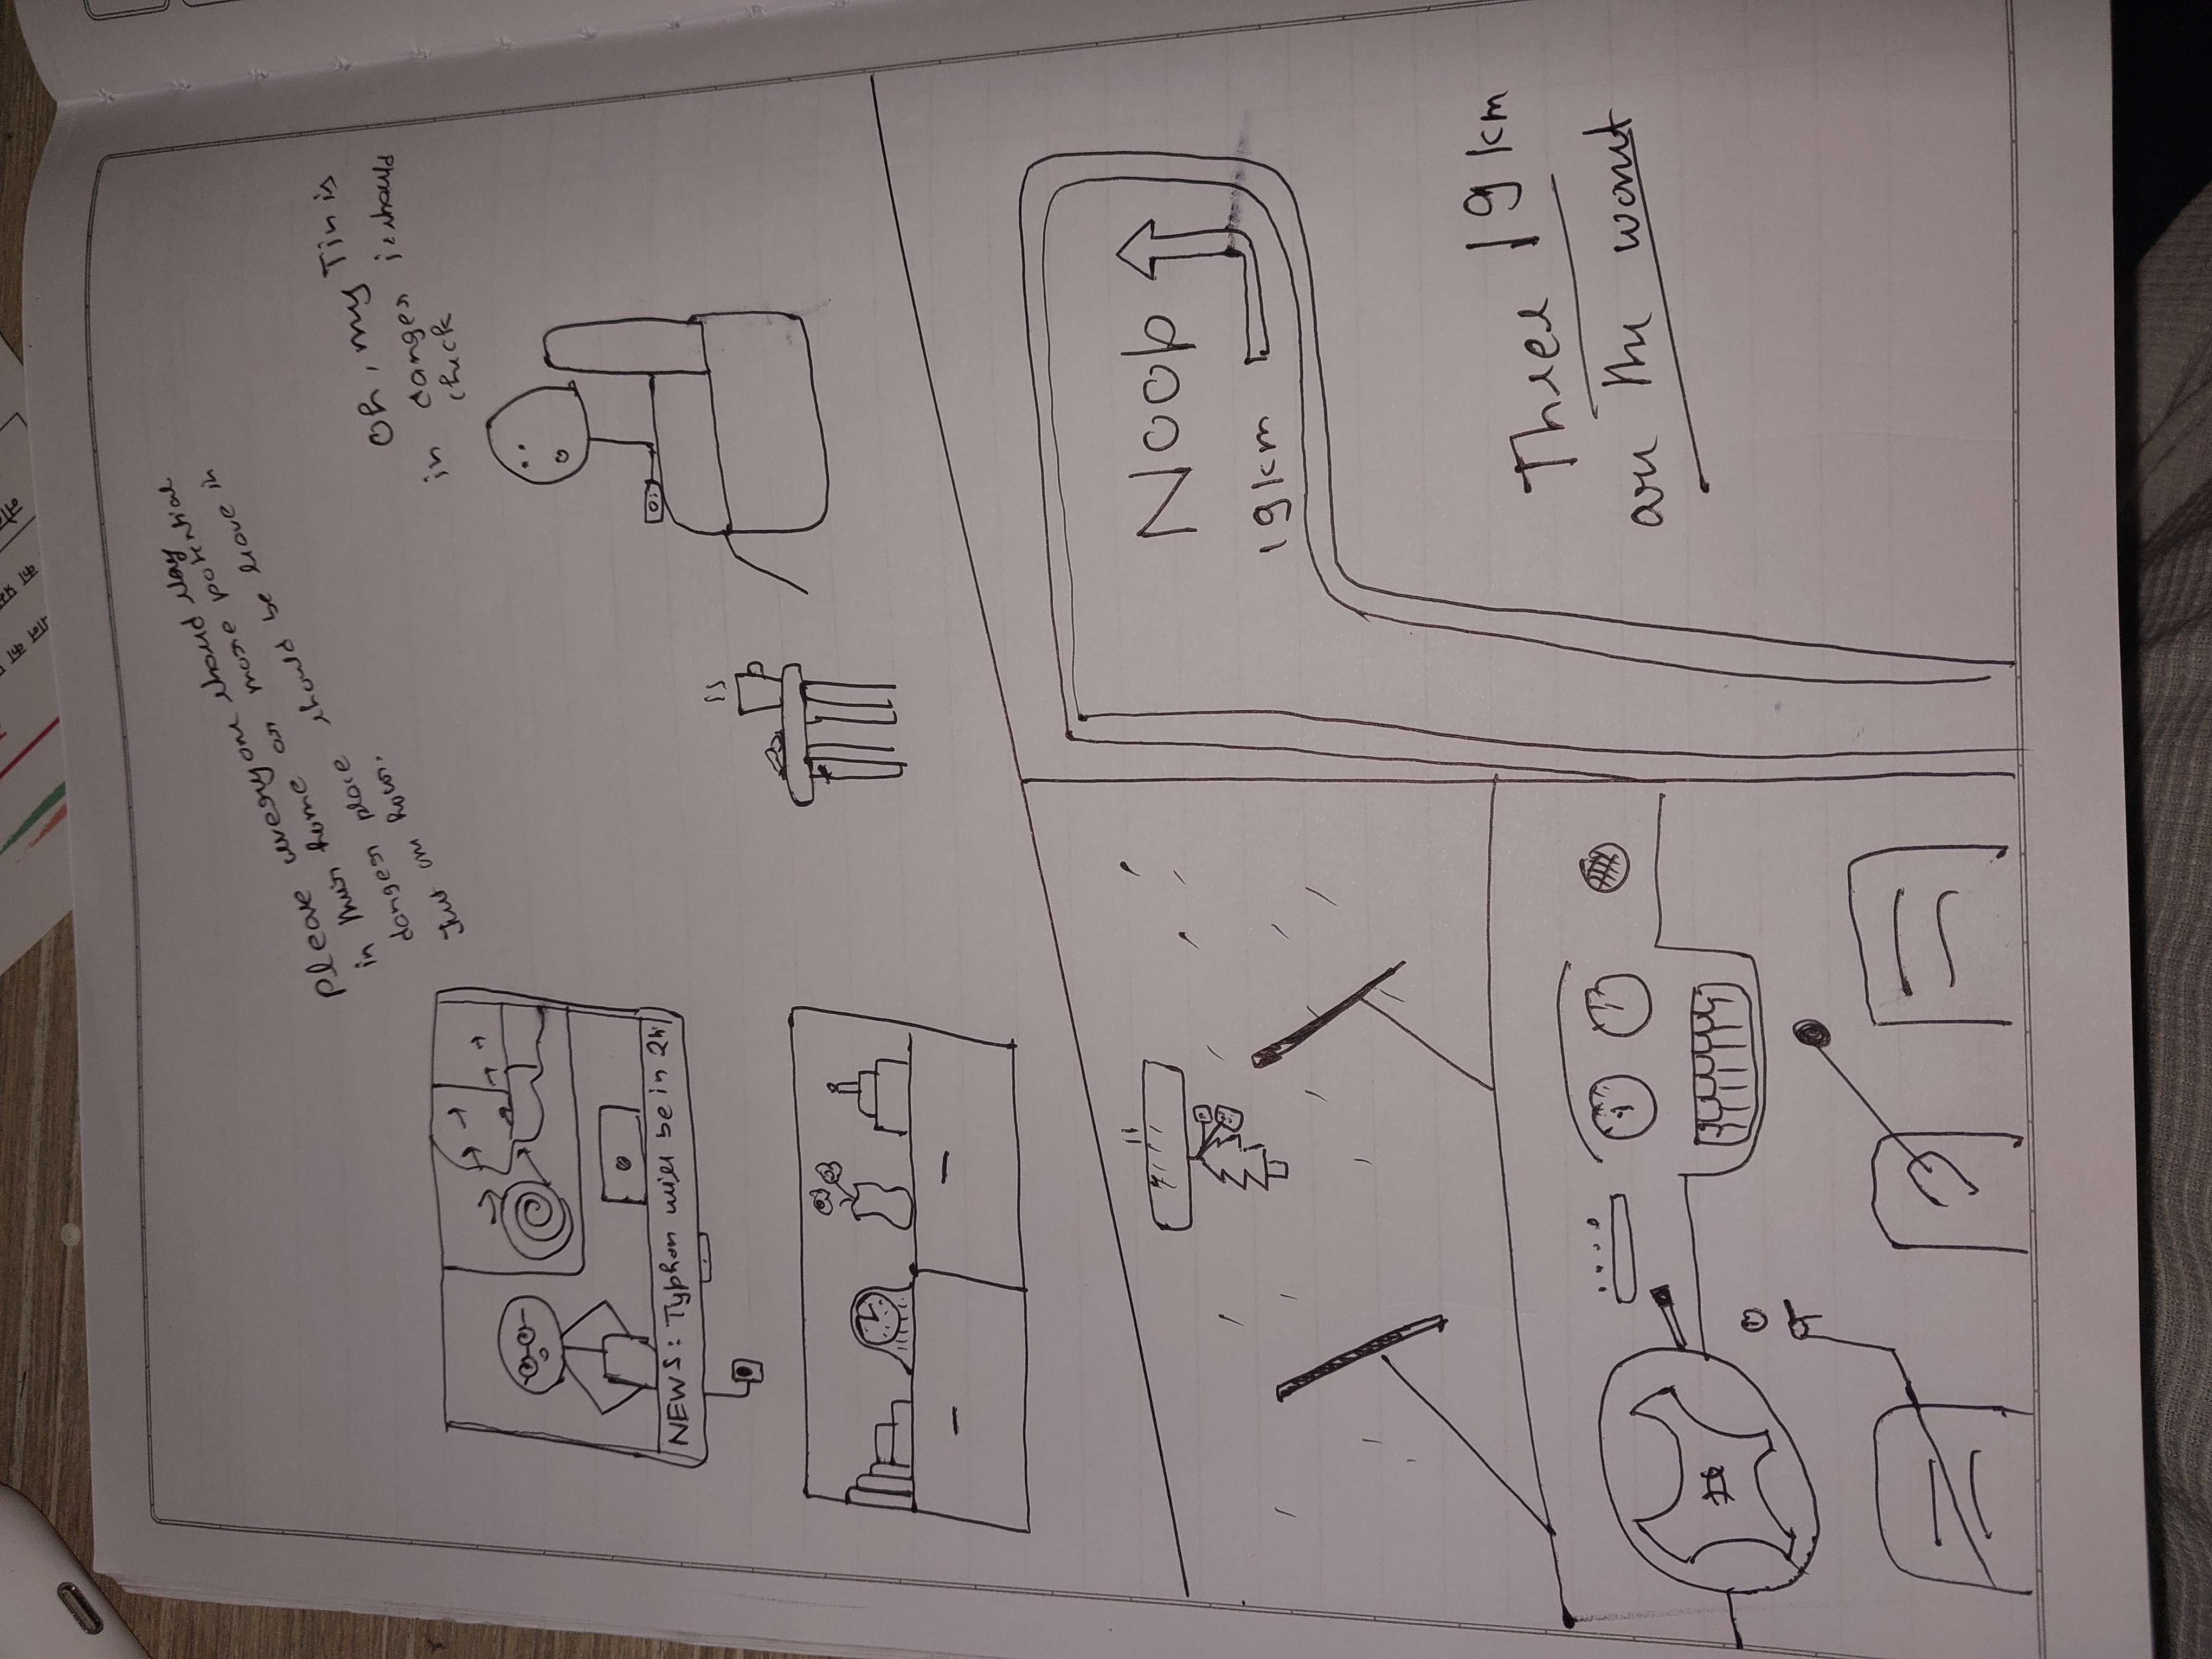 Please everyone should stay
in their home or more potential
danger place should be leave in
Just an hour.
Oh, my Tin is
in danger i should
check
NEWS: Typhon will be in 2h
Noob
19 km
Three 19 km
are the worst